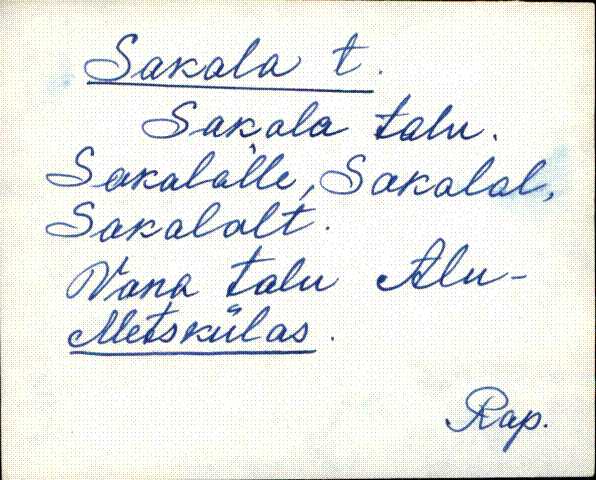 Sakala t.
Sakala talu.
Sakalalle, Sakalal,
Sakalalt.
Vana talu Alu-
Metskülas.
Rap.